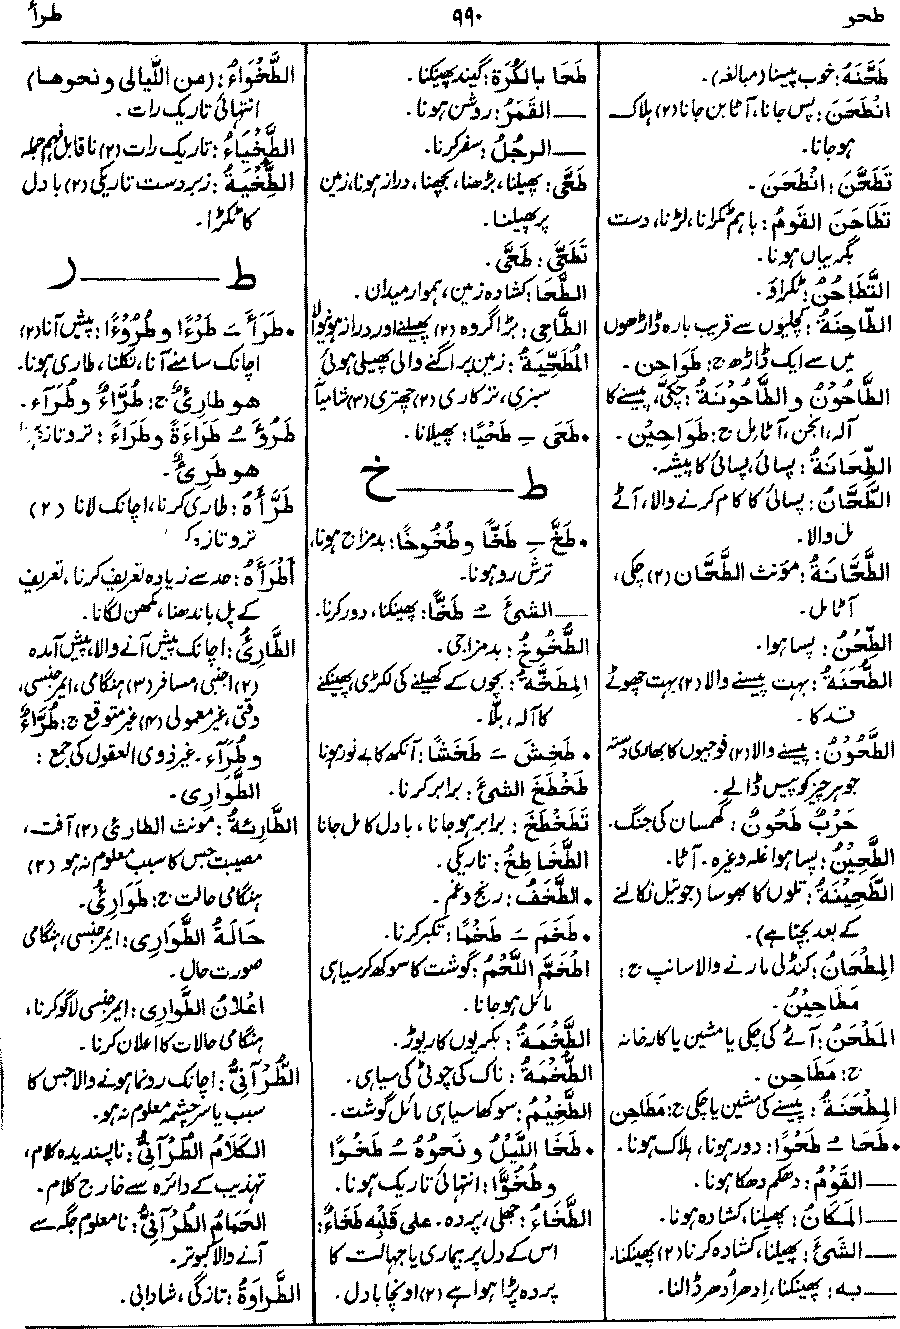 طحو
۹۹۰
طرأ
طَحَّنَهُ: خوب پیسنا (مبالغہ)۔
انْطَحَنَ: پس جانا، آٹا بن جانا (۲) ہلاک
ہو جانا۔
تَطَحَّنَ: انْطَحَنَ۔
تَطَاحَنَ القَومُ: باہم ٹکرانا، لڑنا، دست
بگریباں ہونا۔
التَّطَاحُنُ: ٹکراؤ۔
الطَّاحِنَةُ: کچلیوں سے قریب بارہ ڈاڑھوں
میں سے ایک ڈاڑھ ج: طَوَاحِن۔
الطَّاحُوْنُ و الطَّاحُونَةُ: چکی، پیسنے کا
آلہ، انجن، آٹا مل ج: طَوَاحِيْن۔
الطِّحَانَةُ: پسائی، پسائی کا پیشہ۔
الطَّحَّانُ: پسائی کا کام کرنے والا، آٹے
مل والا۔
الطَّحَّانَةُ: مؤنث الطَّحَّان (۲) چکی،
آٹا مل۔
الطِّحْنُ: پسا ہوا۔
الطُّحَنَةُ: بہت پیسنے والا (۲) بہت چھوٹے
قد کا۔
الطَّحُوْنُ: پیسنے والا (۲) فوجیوں کا بھاری دستہ
جو ہر چیز کو پیس ڈالے۔
حَرْبٌ طَحُونٌ: گھمسان کی جنگ۔
الطَّحِيْنُ: پسا ہوا غلہ وغیرہ۔ آٹا۔
الطَّحِيْنَةُ: تلوں کا بھوسا (جو تیل نکالنے
کے بعد بچتا ہے)۔
المِطْحَانُ: کنڈلی مارنے والا سانپ ج:
مَطَاحِيْنُ۔
المَطْحَنُ: آٹے کی چکی یا مشین یا کارخانہ
ج: مَطَاحِن۔
المِطْحَنَةُ: پیسنے کی مشین یا چکی ج: مَطَاحِن
• طَحَا ـُ طَحْوًا: دور ہونا، ہلاک ہونا۔
ـــ القَوْمُ: دھکم دھکا ہونا۔
ـــ المَكَانُ: پھیلنا، کشادہ ہونا۔
ـــ الشَّیْءَ: پھیلنا، کشادہ کرنا (۲) پھینکنا۔
ـــ بِه: پھینکنا، اِدھر اُدھر ڈالنا۔
طَحَا بِالكُرَةِ: گیند پھینکنا۔
ـــ القَمَرُ: روشن ہونا۔
ـــ الرجلُ: سفر کرنا۔
طَحَّى: پھیلنا، بڑھنا، بچھنا، دراز ہونا، زمین
پر پھیلنا۔
تَطَحَّى: طَحَّى۔
الطَّحَا: کشادہ زمین، ہموار میدان۔
الطَّاحِی: بڑا گروہ (۲) پھیلنے اور دراز ہونیوالا
المُطَحِّيَةُ: زمین پر اگنے والی پھیلی ہوئی
سبزی، ترکاری (۲) چھتری (۳) شامیانہ
• طَحَى ـِ طَحْيًا: پھیلانا۔
ط ــــــ خ
• طَخَّ ـِ طَخًّا و طُخُوخًا: بدمزاج ہونا،
ترش رو ہونا۔
ـــ الشیءَ ـُ طَخًّا: پھینکنا، دور کرنا۔
الطُّخُوخُ: بدمزاجی۔
المِطَخَّةُ: بچوں کے کھیلنے کی لکڑی پھینکنے
کا آلہ، بلّا۔
• طَخِشَ ـَ طَخَشًا: آنکھ کا بے نور ہونا
طَخْطَخَ الشیءَ: برابر کرنا۔
تَطَخْطَخَ: برابر ہو جانا، بادل کا مل جانا
الطُّخَاطِخُ: تاریکی۔
• الطَّخَفُ: رنج و غم۔
• طَخَمَ ـَ طَخْمًا: تکبر کرنا۔
اطْخَمَّ اللَّحْمُ: گوشت کا سوکھ کر سیاہی
مائل ہو جانا۔
الطَّخْمَةُ: بکریوں کا ریوڑ۔
الطُّخْمَةُ: ناک کی چوٹی کی سیاہی۔
الطَّخِيْمُ: سوکھا سیاہی مائل گوشت۔
• طَخَا اللَّيْلُ و نَحْوُهُ ـُ طَخْوًا
و طُخُوًّا: انتہائی تاریک ہونا۔
الطَّخَاءُ: جھلی، پردہ۔ علی قَلْبِه طَخَاءٌ:
اس کے دل پر بیماری یا جہالت کا
پردہ پڑا ہوا ہے (۲) اونچا بادل۔
الطَّخْوَاءُ: (من اللَّيالی و نحوها)
انتہائی تاریک رات۔
الطَّخْيَاءُ: تاریک رات (۲) ناقابل فہم جملہ
الطَّخْيَةُ: زبردست تاریکی (۲) بادل
کا ٹکڑا۔
ط ــــــ ر
• طَرَأَ ـَ طَرْءًا و طُرُوْءًا: پیش آنا (۲)
اچانک سامنے آنا، نکلنا، طاری ہونا۔
هو طارِئٌ ج: طُرَّاءٌ و طُرَآء۔
طَرُؤَ ـُ طَرَاءَةً و طَرَاءً: تروتازہ
هو طَرِیْءٌ۔
طَرَّأَهُ: طاری کرنا، اچانک لانا (۲)
تروتازہ
أَطْرَأَهُ: حد سے زیادہ تعریف کرنا، تعریف
کے پل باندھنا، مکھن لگانا۔
الطَّارِئُ: اچانک پیش آنے والا، پیش آمدہ
(۲) اجنبی، مسافر (۳) ہنگامی، ایمرجنسی،
وقتی، غیر معمولی (۴) غیر متوقع ج: طُرَّاءٌ
و طُرَآء۔ غیر ذوی العقول کی جمع:
الطَّوارِی۔
الطَّارِئَةُ: مؤنث الطارئ (۲) آفت،
مصیبت جس کا سبب معلوم نہ ہو (۳)
ہنگامی حالت ج: طَوَارِئُ۔
حَالَةُ الطَّوارِی: ایمرجنسی، ہنگامی
صورت حال۔
اعْلَانُ الطَّوارِی: ایمرجنسی لاگو کرنا،
ہنگامی حالات کا اعلان کرنا۔
الطُّرْآنِیُّ: اچانک رونما ہونے والا جس کا
سبب یا سرچشمہ معلوم نہ ہو۔
الكَلَامُ الطُّرْآنِیُّ: ناپسندیدہ کلام،
تہذیب کے دائرہ سے خارج کلام۔
الحَمَامُ الطُّرْآنِیُّ: نامعلوم جگہ سے
آنے والا کبوتر۔
الطَّرَاوَةُ: تازگی، شادابی۔